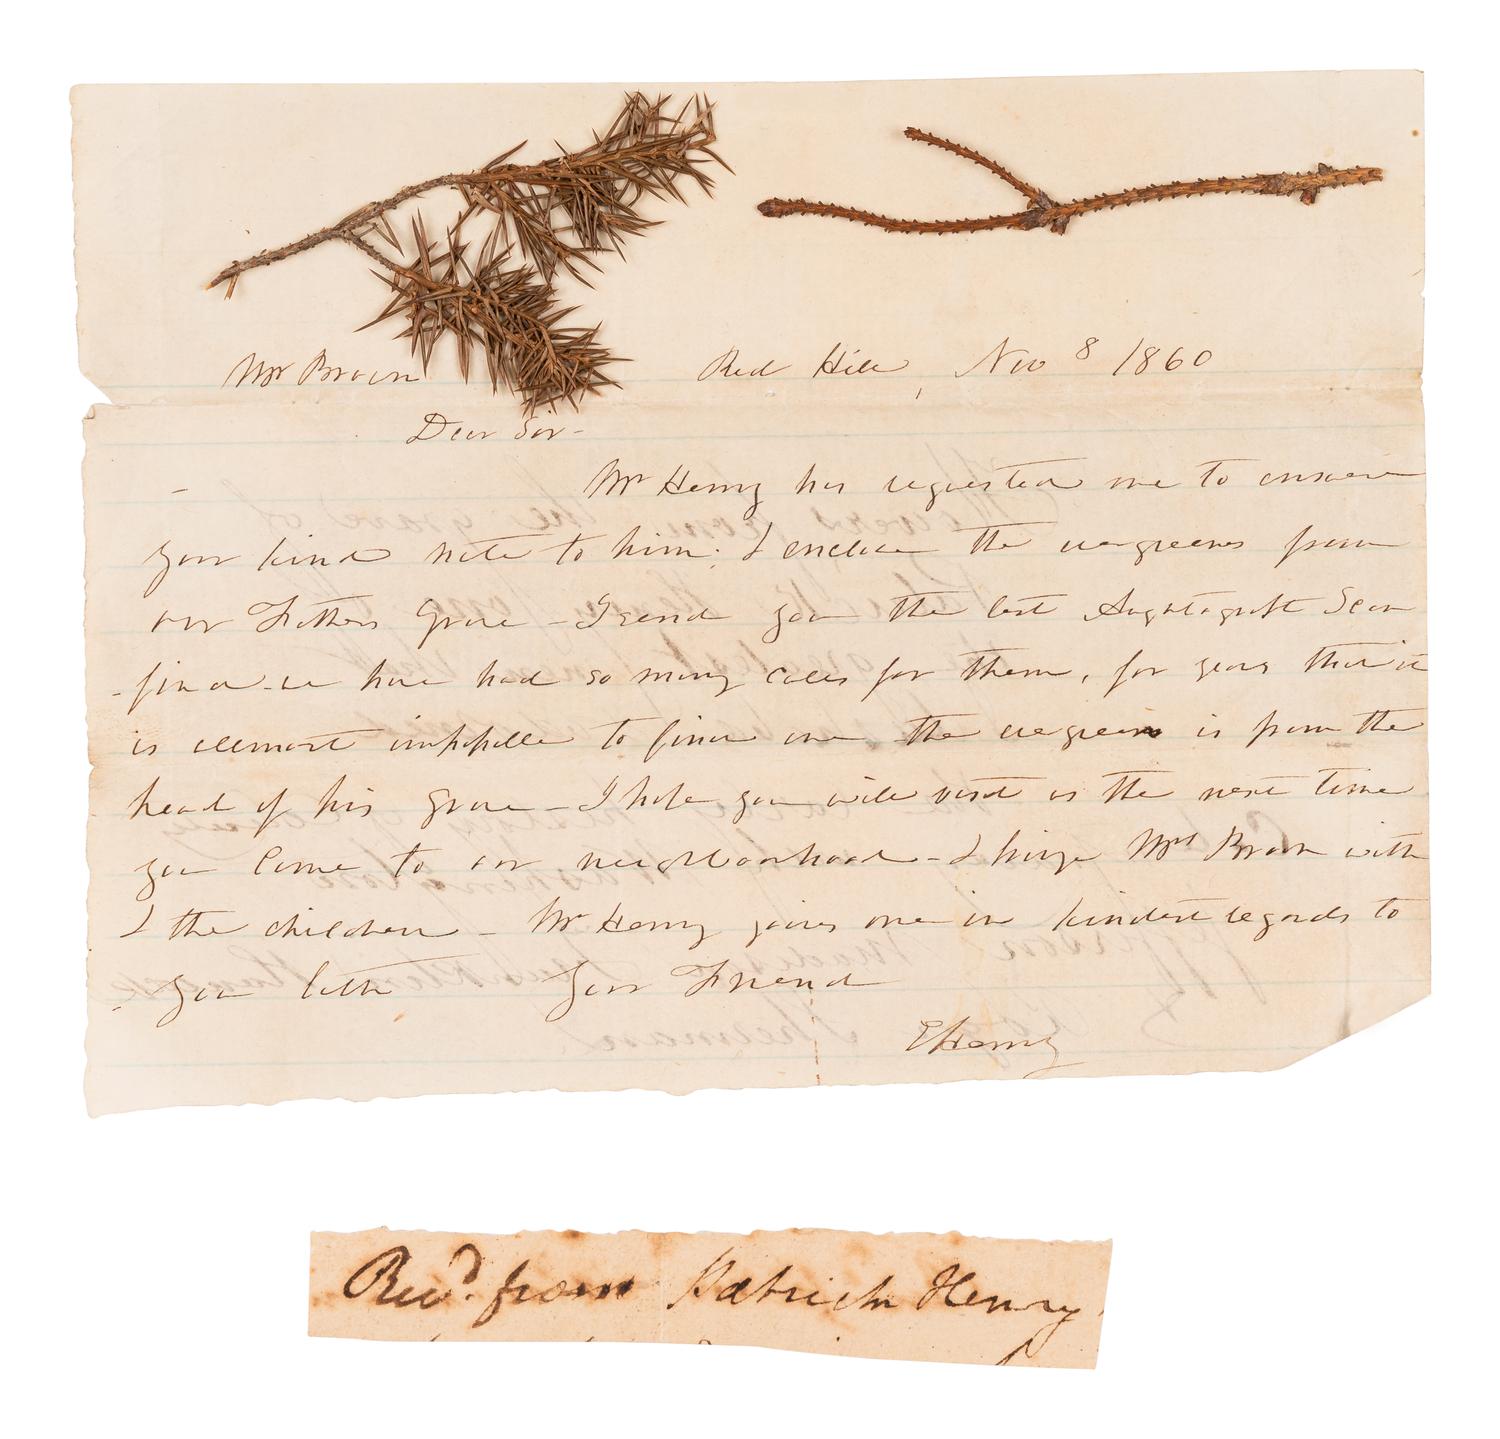 Mr Brown Red Hill, Nov 8 1860
Dear Sir-
Mr Henry has requested me to answer
your kind note to him. I enclose the evergreens from
our Fathers Grave - I send you the last Autograph I can
find - we have had so many calls for them, for years that it
is almost impossible to find one the evergreen is from the
head of his Grave - I hope you will visit us the next time
you come to our neighborhood - & bring Mrs Brown with
& the children - Mr Henry joins me in kindest regards to
you both Your Friend
E Henry
Recd. from Patrick Henry